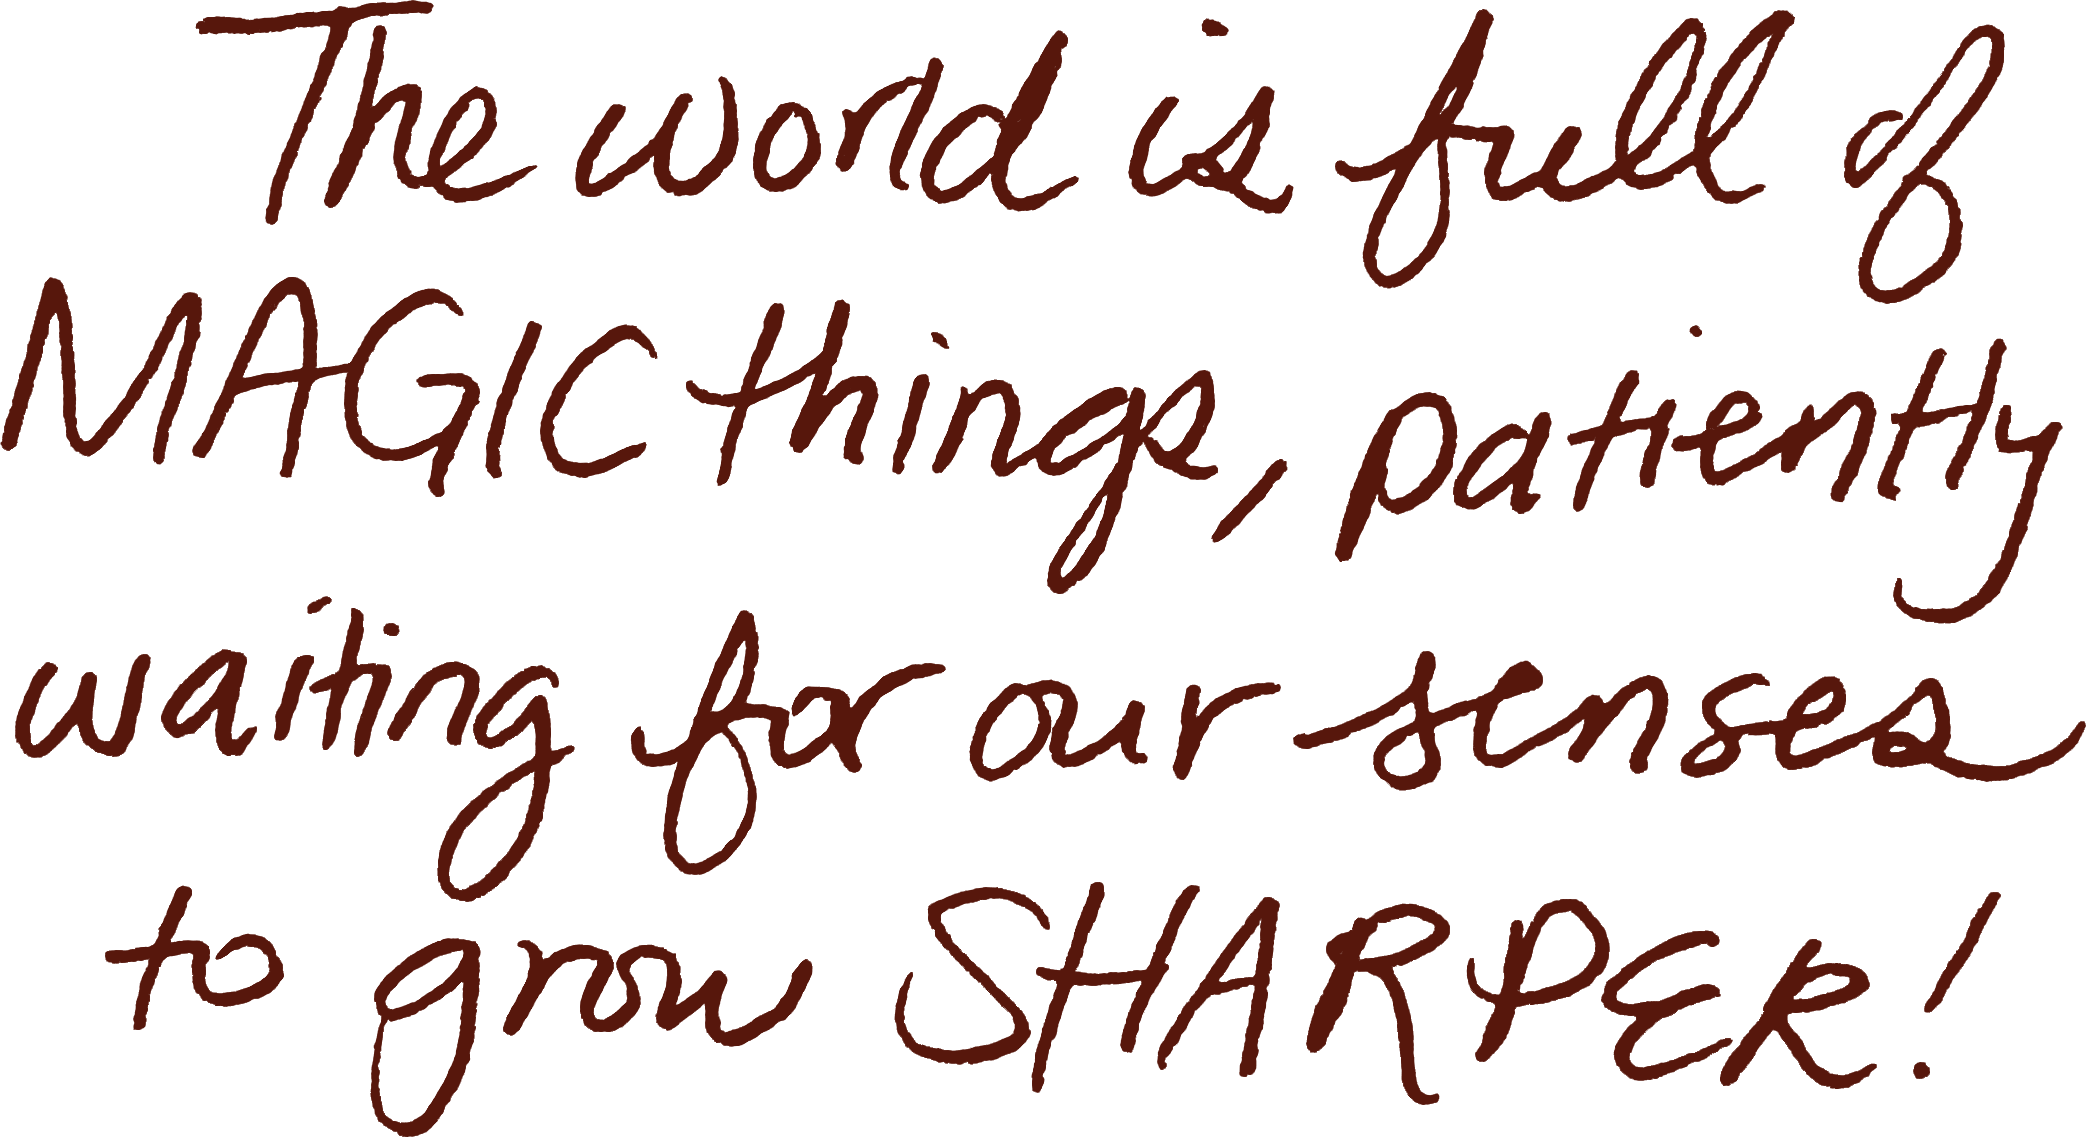 The world is full of
MAGIC things, patiently
waiting for our senses
to grow SHARPER!